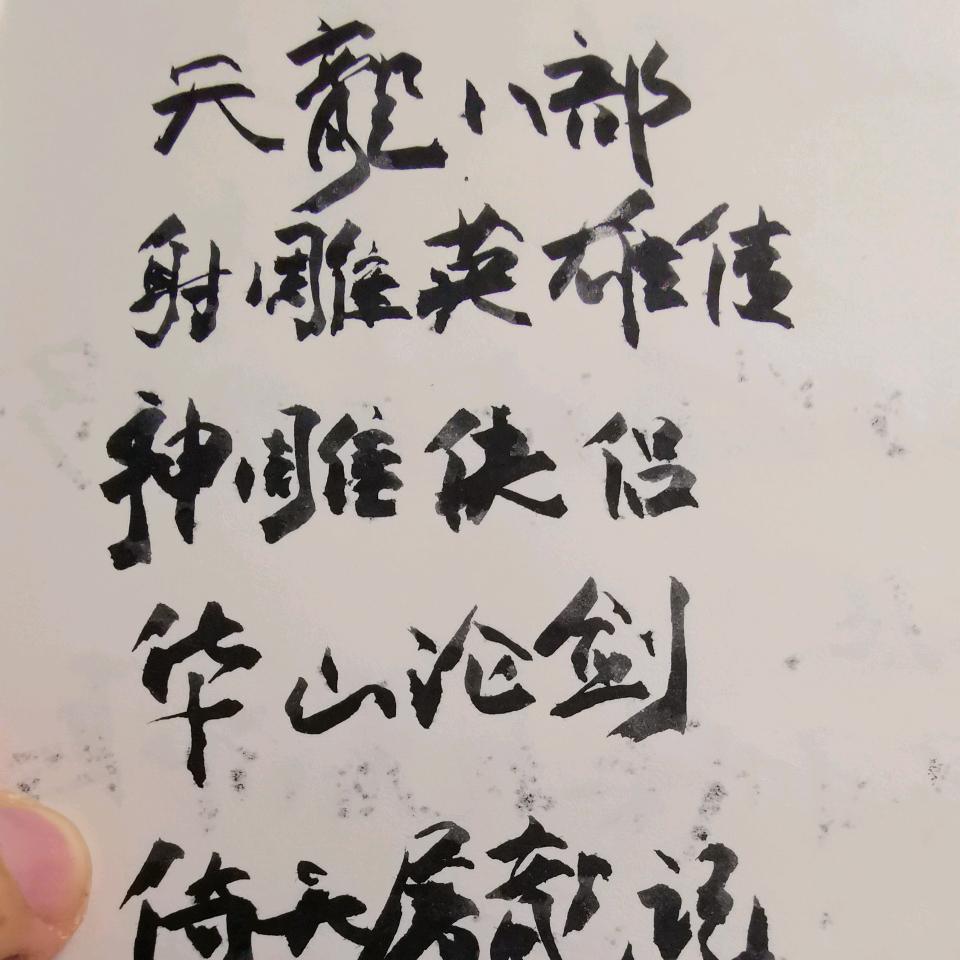 天龍八部
射雕英雄傳
神雕侠侣
华山论剑
倚天屠龍记